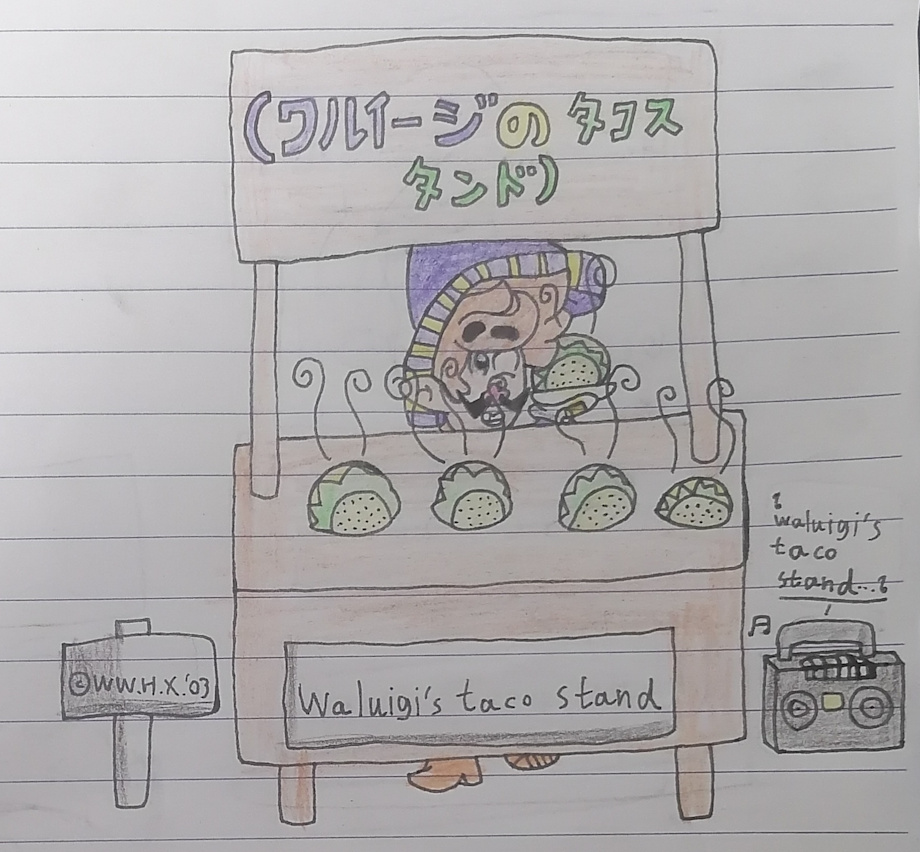 (ワルイージの タコス
タンド)
waluigi's
taco
stand...
©WW.H.X.'03
Waluigi's taco stand